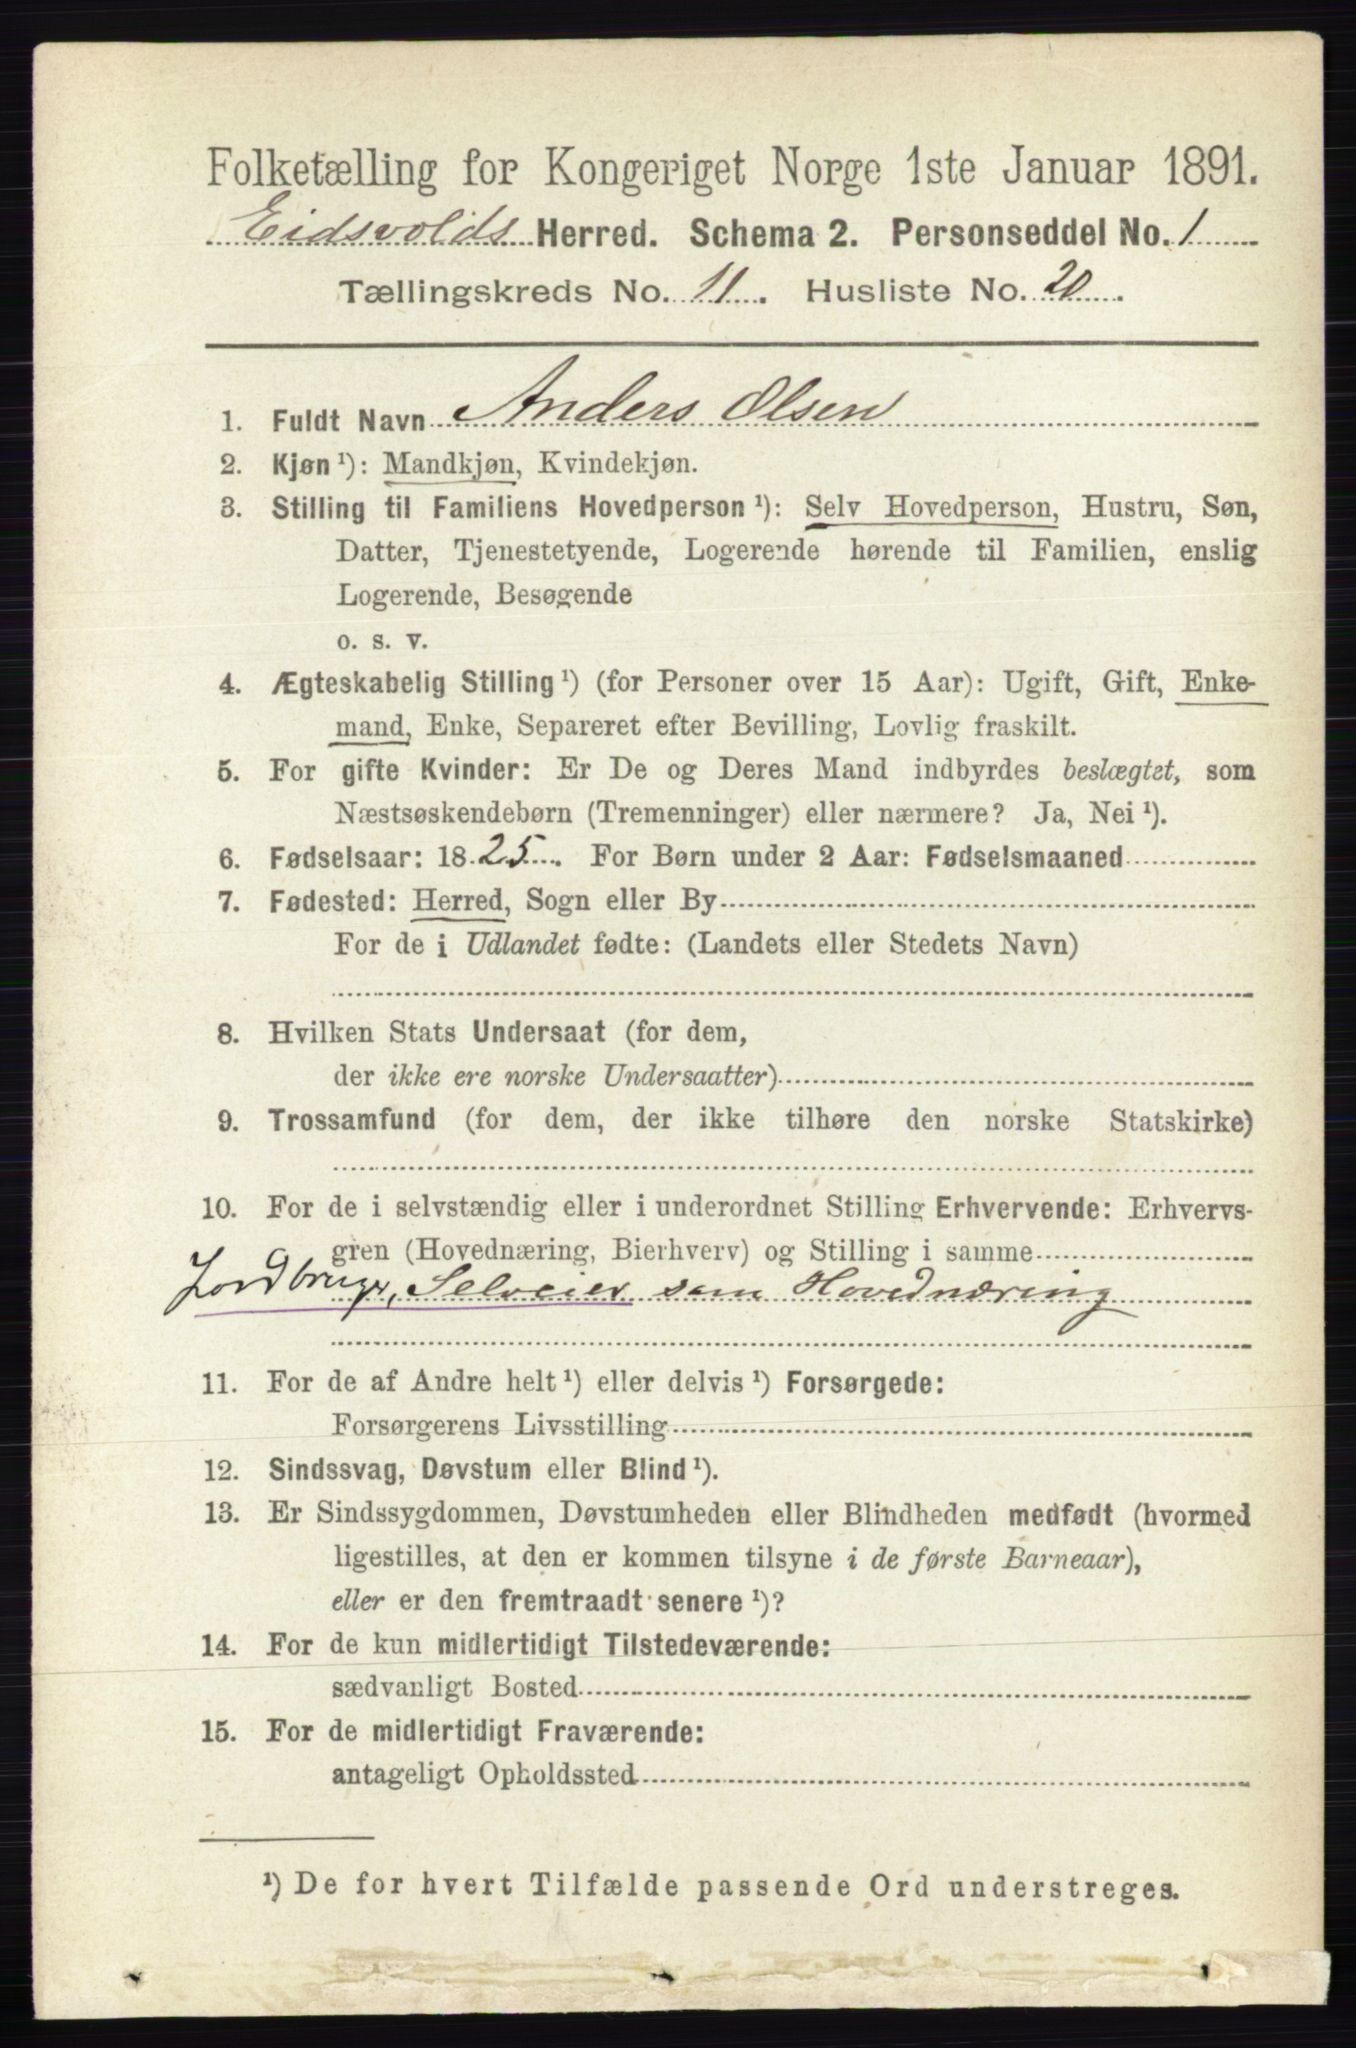 Folketælling for Kongeriget Norge 1ste Januar 1891.
Eidsvolds Herred. Schema 2. Personseddel No. 1
Tællingskreds No. 11. Husliste No. 20.
1. Fuldt Navn Anders Olsen
2. Kjøn ¹): Mandkjøn, Kvindekjøn.
3. Stilling til Familiens Hovedperson ¹): Selv Hovedperson, Hustru, Søn,
Datter, Tjenestetyende, Logerende hørende til Familien, enslig
Logerende, Besøgende
o. s. v.
4. Ægteskabelig Stilling ¹) (for Personer over 15 Aar): Ugift, Gift, Enke-
mand, Enke, Separeret efter Bevilling, Lovlig fraskilt.
5. For gifte Kvinder: Er De og Deres Mand indbyrdes beslægtet, som
Næstsøskendebørn (Tremenninger) eller nærmere? Ja, Nei ¹).
6. Fødselsaar: 1825. For Børn under 2 Aar: Fødselsmaaned
7. Fødested: Herred, Sogn eller By
For de i Udlandet fødte: (Landets eller Stedets Navn)
8. Hvilken Stats Undersaat (for dem,
der ikke ere norske Undersaatter)
9. Trossamfund (for dem, der ikke tilhøre den norske Statskirke)
10. For de i selvstændig eller i underordnet Stilling Erhvervende: Erhvervs-
gren (Hovednæring, Bierhverv) og Stilling i samme
Jordbruger, Selveier som Hovednæring
11. For de af Andre helt ¹) eller delvis ¹) Forsørgede:
Forsørgerens Livsstilling
12. Sindssvag, Døvstum eller Blind ¹).
13. Er Sindssygdommen, Døvstumheden eller Blindheden medfødt (hvormed
ligestilles, at den er kommen tilsyne i de første Barneaar),
eller er den fremtraadt senere ¹)?
14. For de kun midlertidigt Tilstedeværende:
sædvanligt Bosted
15. For de midlertidigt Fraværende:
antageligt Opholdssted
¹) De for hvert Tilfælde passende Ord understreges.